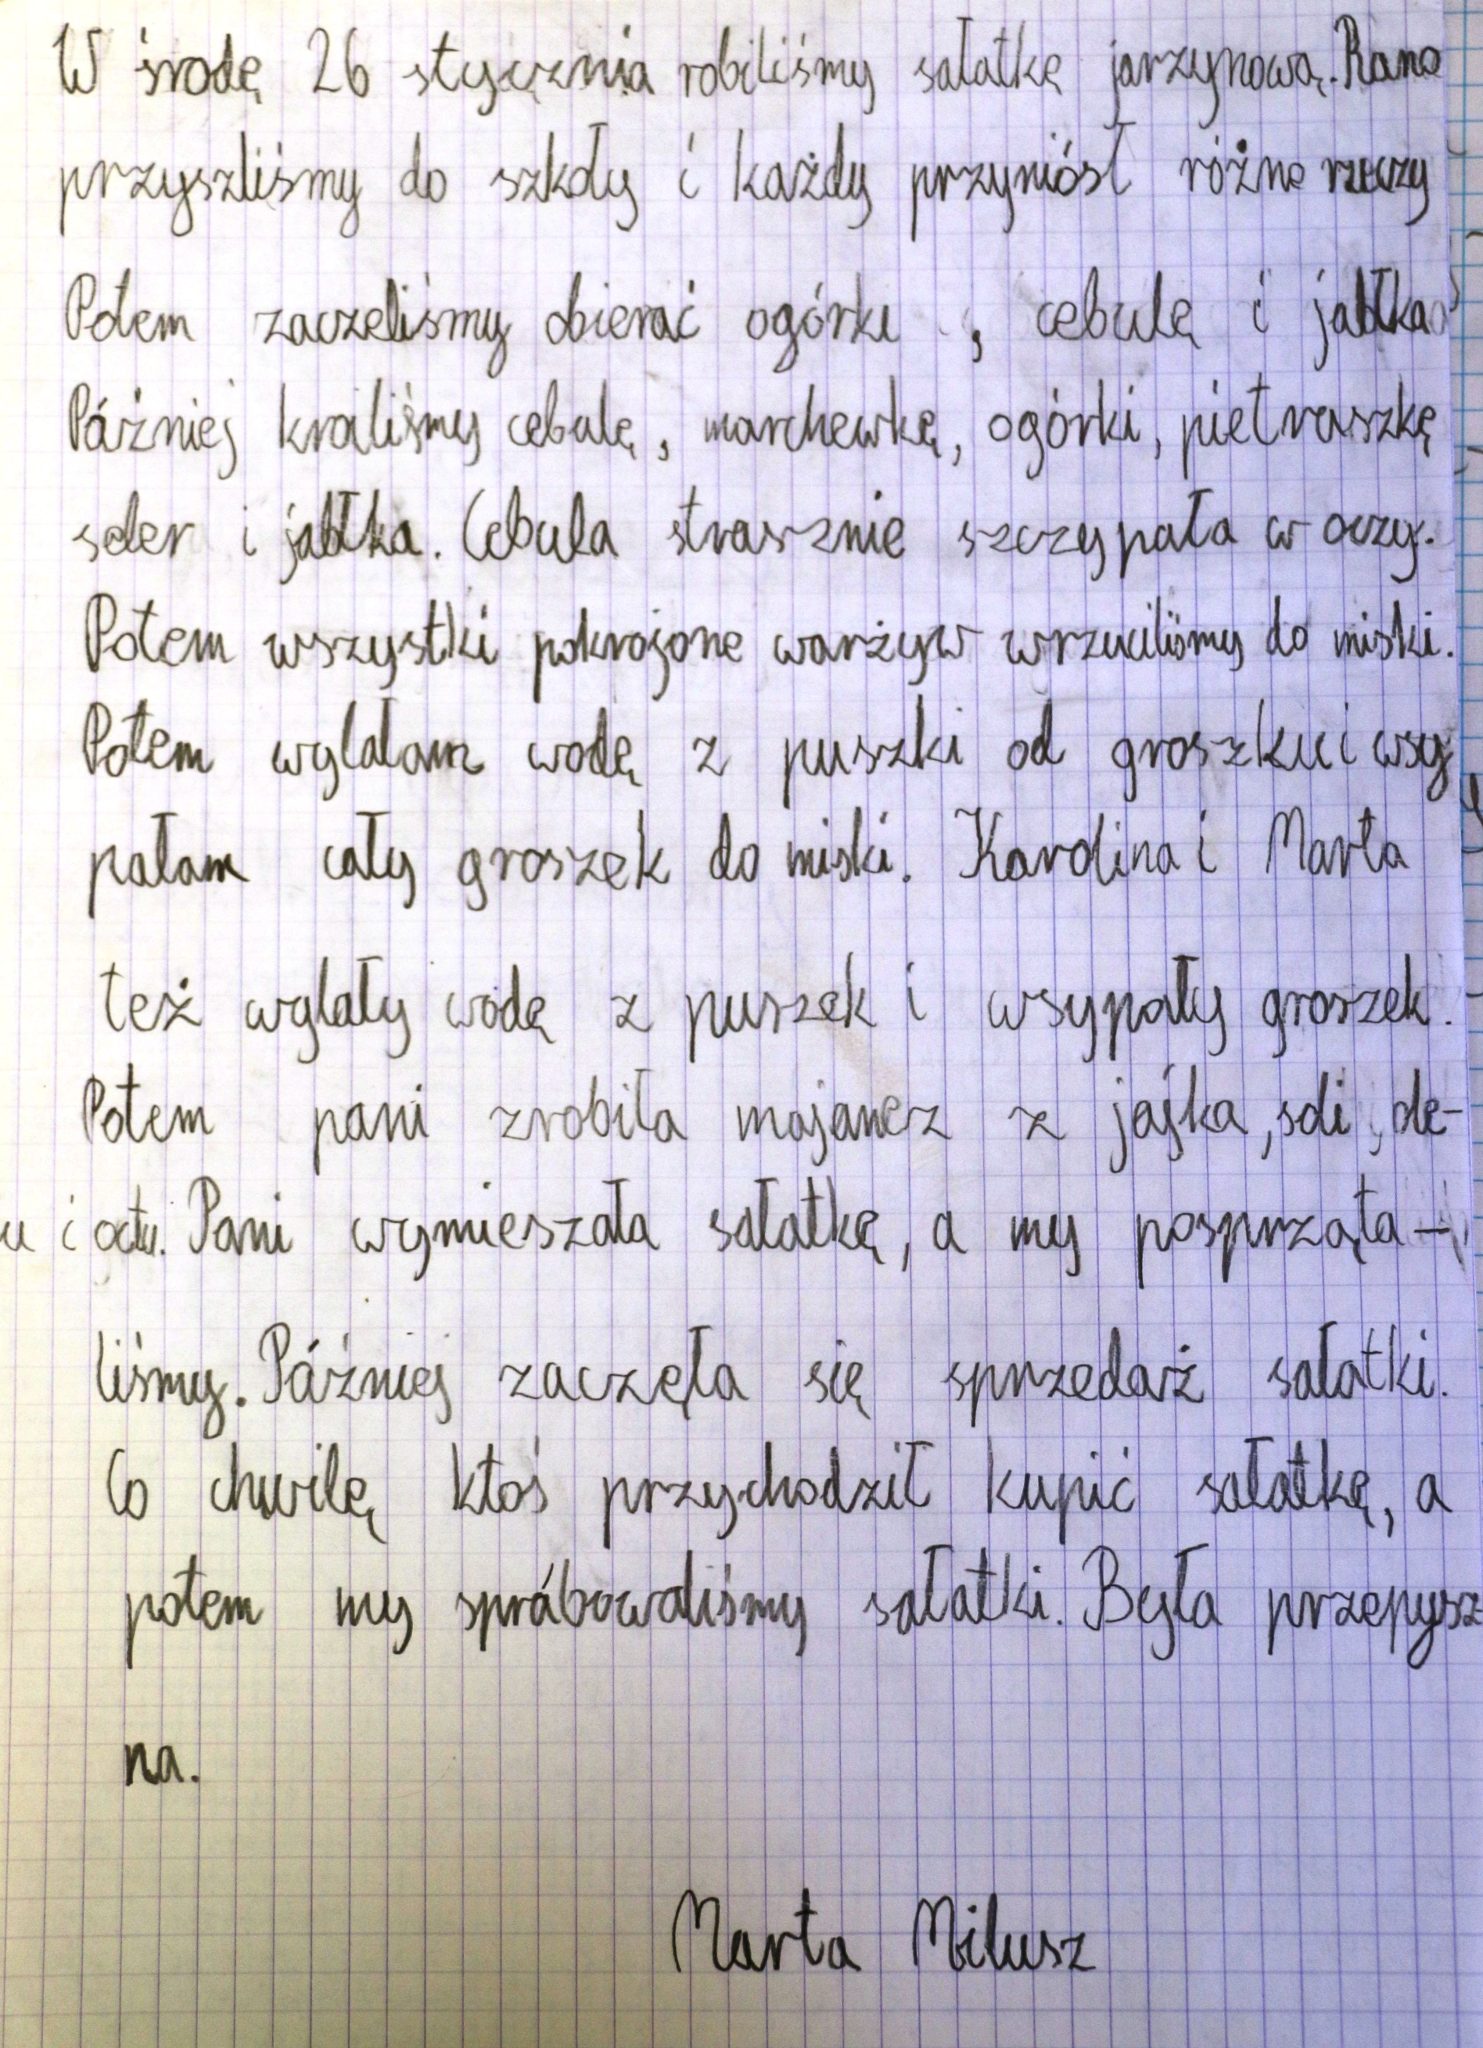 W środę 26 styycznia robiliśmy sałatkę jarzynową. Rano
przyszliśmy do szkoły i każdy przyniósł różne rzeczy
Potem zaczeliśmy obierać ogórki , cebulę i jabłka
Później kroiliśmy cebulę, marchewkę, ogórki, pietruszkę
seler i jabłka. Cebula strasznie szczypała w oczy.
Potem wszystki pokrojone warżyw wrzuciliśmy do miski.
Potem wylałam wodę z puszki od groszku i wsy
pałam cały groszek do miski. Karolina i Marta
też wylały wodę z puszek i wsypały groszek.
Potem pani zrobiła majonez z jajka, soli, ole-
u i octu. Pani wymieszała sałatkę, a my posprząta-
liśmy. Później zaczęła się sprzedaż sałatki.
Co chwilę ktoś przychodził kupić sałatkę, a
potem my spróbowaliśmy sałatki. Była przepysz
na.
Marta Milusz